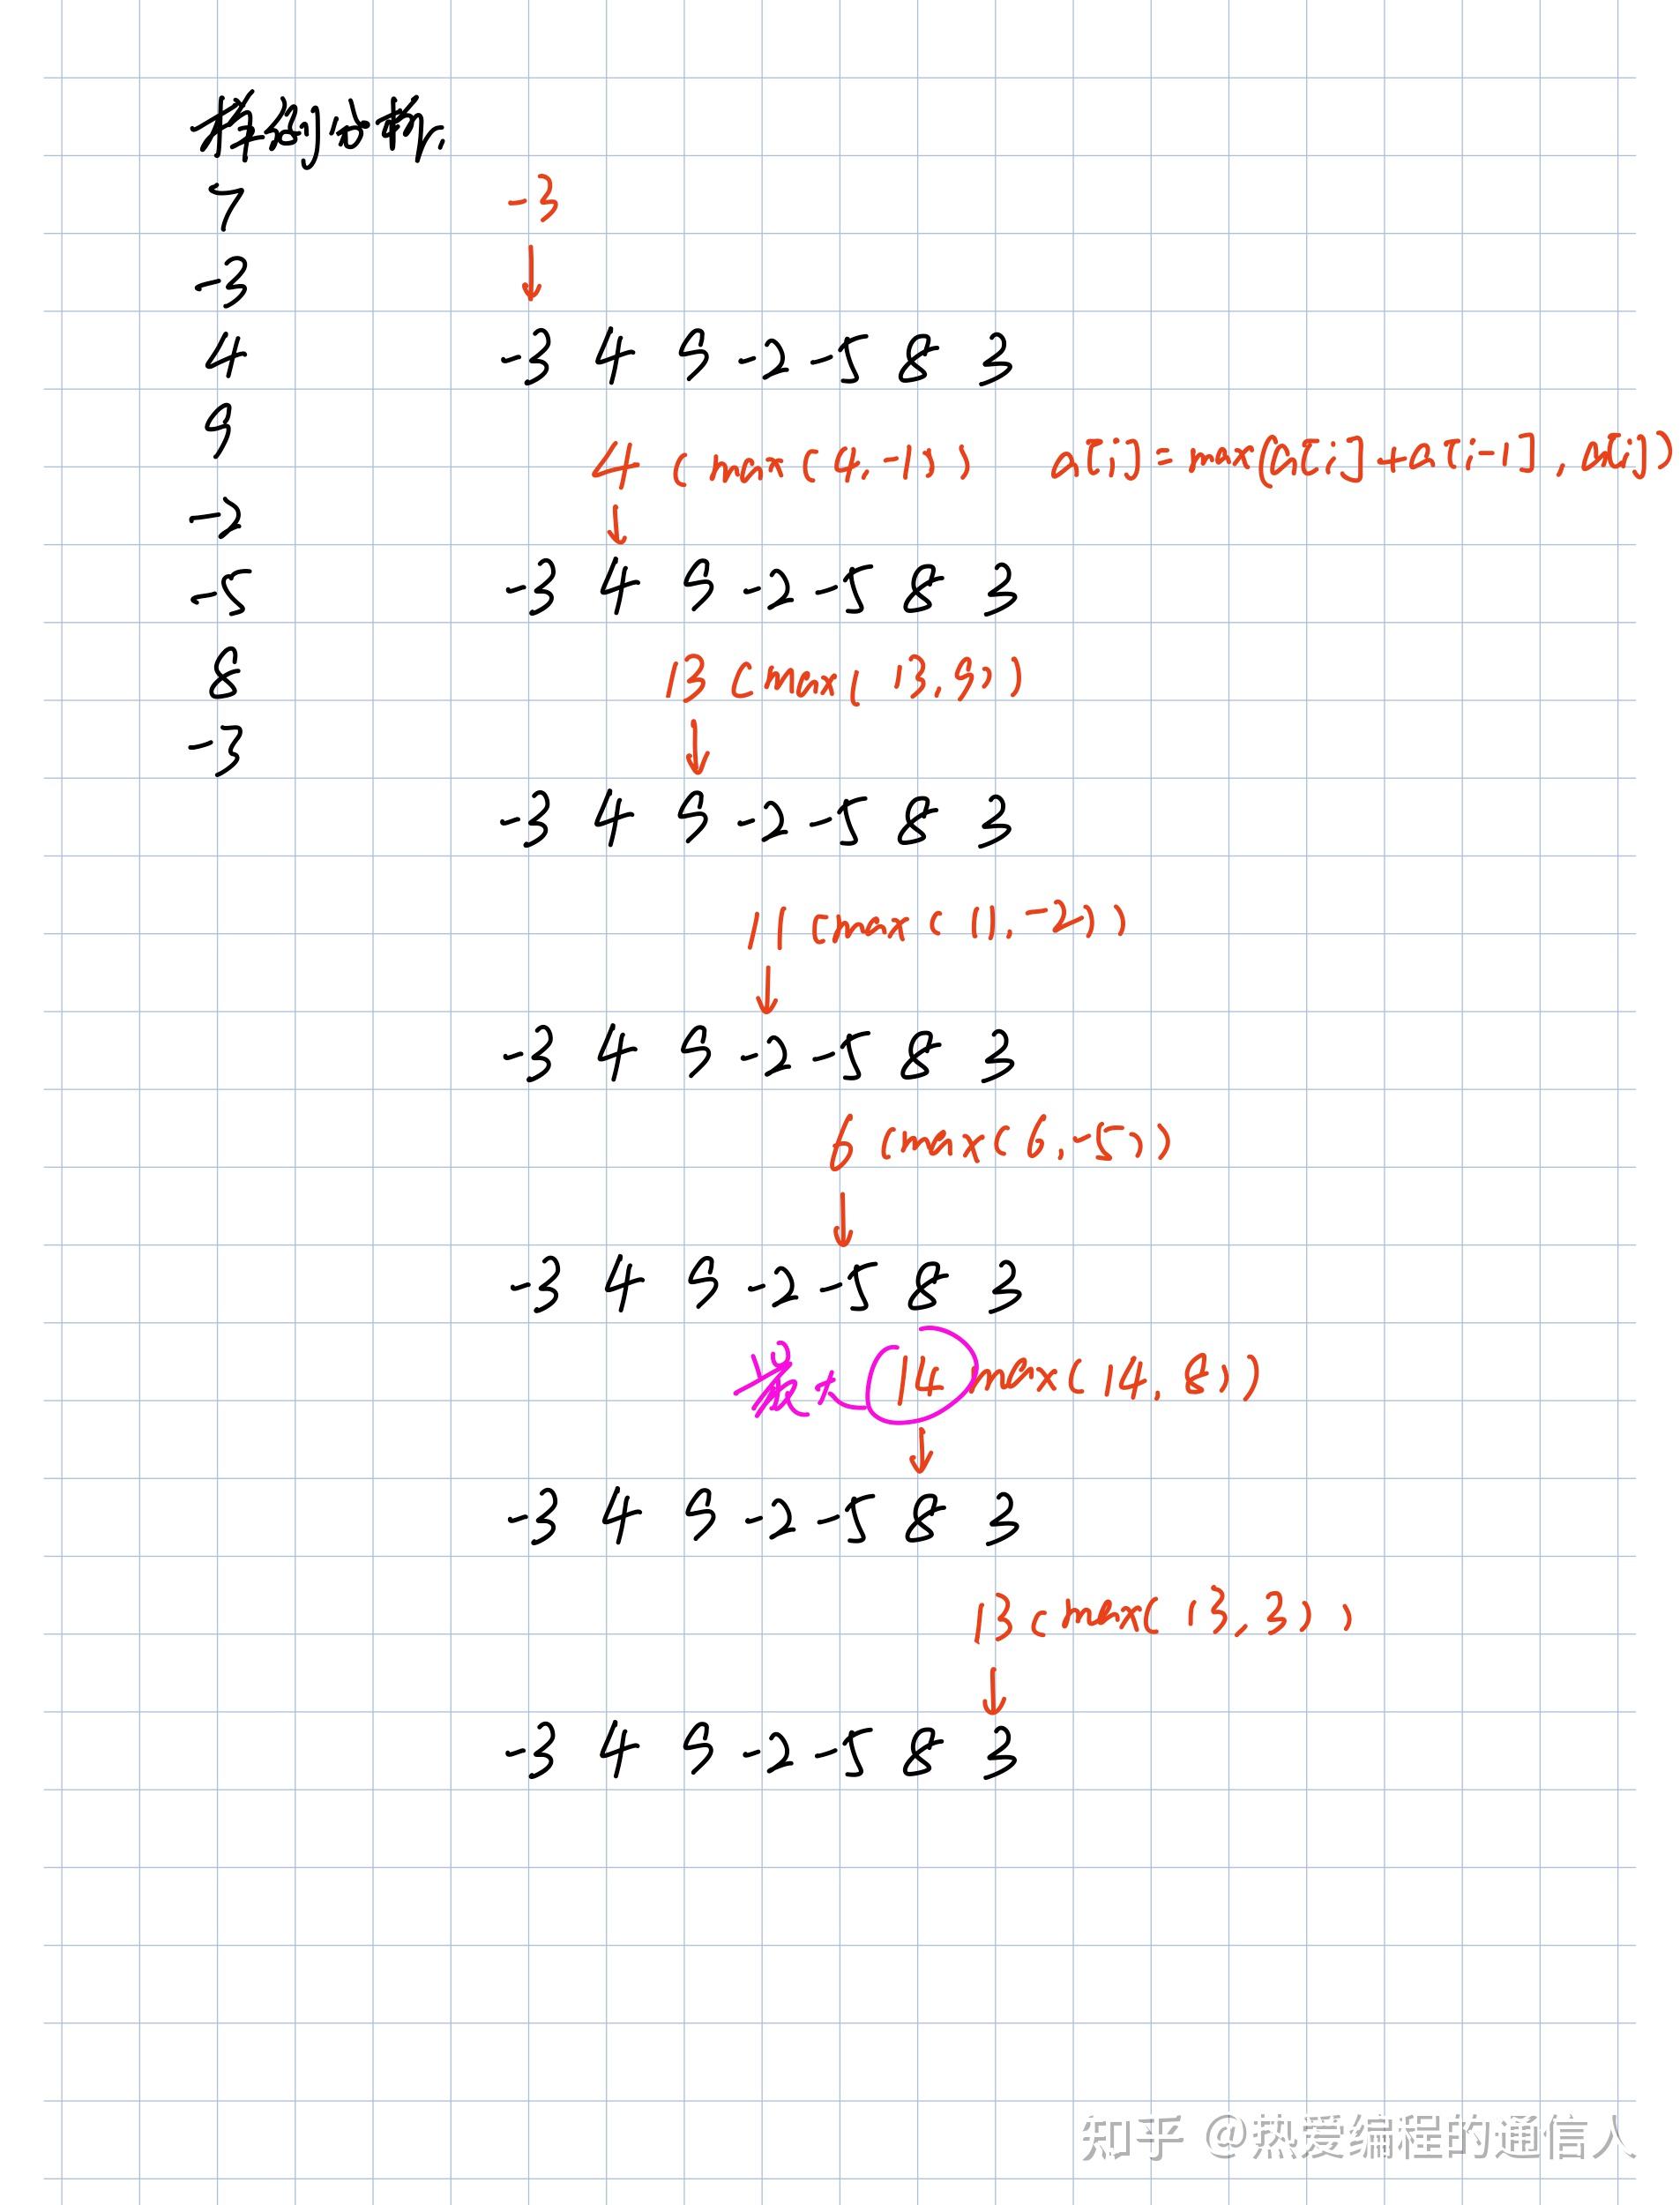 样例分析.
7
-3
4
9
-2
-5
8
-3
-3
-3 4 9 -2 -5 8 3
4 (max(4,-1)) a[i]=max(a[i]+a[i-1], a[i])
-3 4 9 -2 -5 8 3
13 (max(13,9))
-3 4 9 -2 -5 8 3
11 (max(11,-2))
-3 4 9 -2 -5 8 3
6 (max(6,-5))
-3 4 9 -2 -5 8 3
最大 14 max(14,8)
-3 4 9 -2 -5 8 3
13 (max(13,3))
-3 4 9 -2 -5 8 3
知乎 @热爱编程的通信人